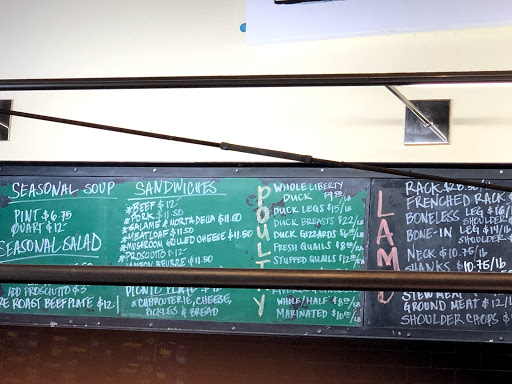 SEASONAL SOUP
PINT $6.75
QUART $12
SEASONAL SALAD
ADD PROSCIUTTO $3
ROAST BEEF PLATE $12
SANDWICHES
*BEEF $12
*PORK $11.50
*SALAME & MORTADELLA $11.50
*MEATLOAF $11.50
*MUSHROOM GRILLED CHEESE $11.50
*PROSCIUTTO $12
BEURRE $11.50
PICNIC PLATE
*CHARCUTERIE, CHEESE,
PICKLES & BREAD
POULTRY
WHOLE LIBERTY
DUCK $9.50/LB
DUCK LEGS $15/LB
DUCK BREASTS $22/LB
DUCK GIZZARDS
FRESH QUAILS
STUFFED QUAILS
WHOLE/HALF
MARINATED
LAMB
RACK
FRENCHED RACK
BONELESS LEG $16/
SHOULDER
BONE-IN LEG $14/LB
SHOULDER
NECK $10.75/LB
SHANKS $10.75/LB
STEW MEAT
GROUND MEAT $12/LB
SHOULDER CHOPS